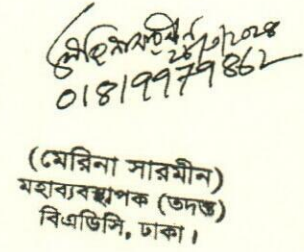 01819979862
(মেরিনা সারমীন)
মহাব্যবস্থাপক (তদন্ত)
বিএডিসি, ঢাকা।